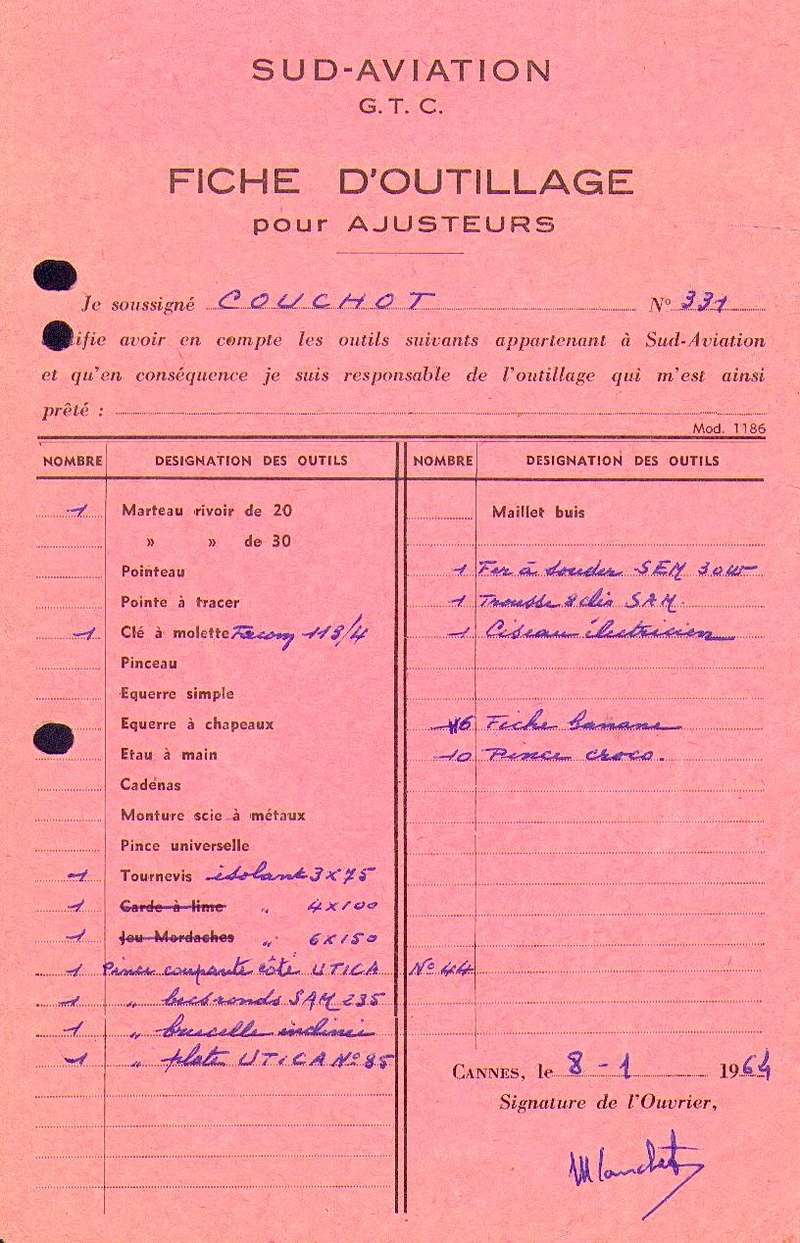 SUD-AVIATION
G.T.C.
FICHE D'OUTILLAGE
pour AJUSTEURS
Je soussigné COUCHOT N° 331
ifie avoir en compte les outils suivants appartenant à Sud-Aviation
et qu'en conséquence je suis responsable de l'outillage qui m'est ainsi
prêté :
Mod. 1186
NOMBRE DESIGNATION DES OUTILS
1 Marteau rivoir de 20
» » de 30
Pointeau
Pointe à tracer
1 Clé à molette Facom 113/4
Pinceau
Equerre simple
Equerre à chapeaux
Etau à main
Cadenas
Monture scie à métaux
Pince universelle
1 Tournevis isolant 3x75
1 Garde à lime " 4x100
1 Jeu Mordaches " 6x150
1 Pince coupante côté UTICA N° 44
1 " becs ronds SAM 235
1 " brucelle inclinée
1 " plate UTICA N° 85
NOMBRE DESIGNATION DES OUTILS
Maillet buis
1 Fer à souder SEM 30W
1 Trousse 8 clés SAM.
1 Ciseau électricien
6 Fiche banane
10 Pince croco.
CANNES, le 8-1 1964
Signature de l'Ouvrier,